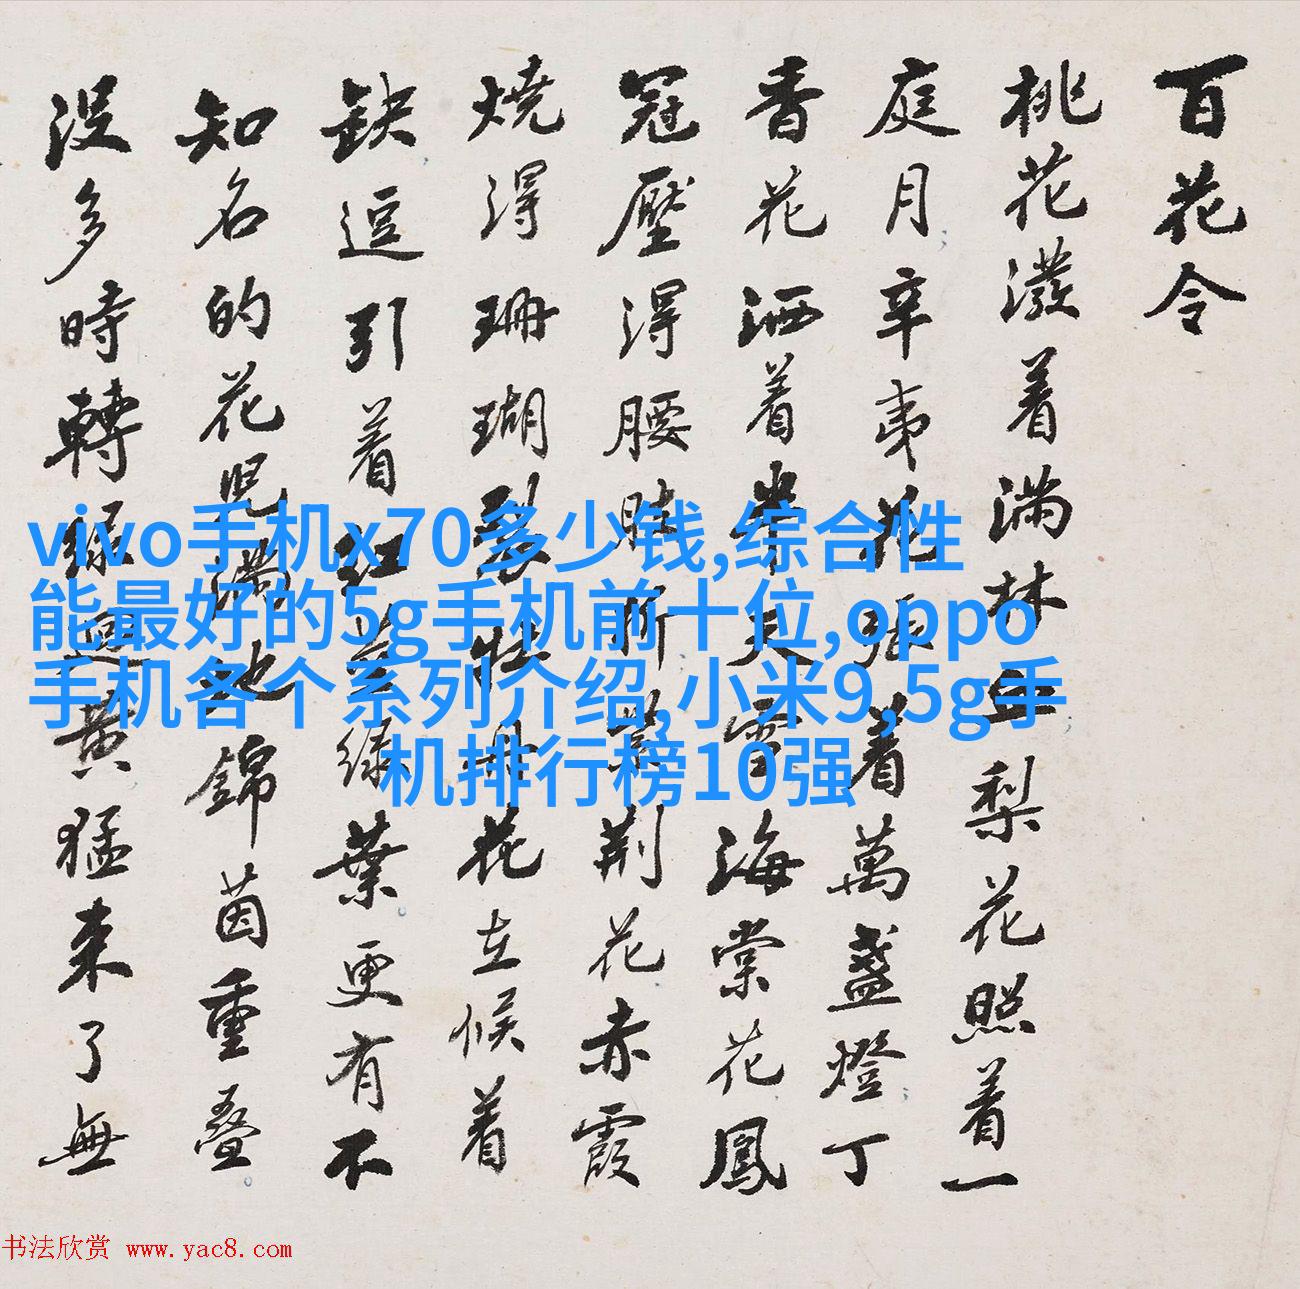 百花令
桃花潑着滿林血梨花照着一
庭月辛夷花張着萬盞燈丁
香花洒着半天雪海棠花鳳
冠壓得腰肢折紫荊花赤霞
燒得珊瑚裂牡丹花立候着
缺逗引着紅芭綠葉更有不
知名的花兒滿地錦茵重叠
没多時轉綠回黃猛來了無
vivo手机x70多少钱,综合性
能最好的5g手机前十位,oppo
手机各个系列介绍,小米9,5g手
机排行榜10强
书法欣赏 www.yac8.com